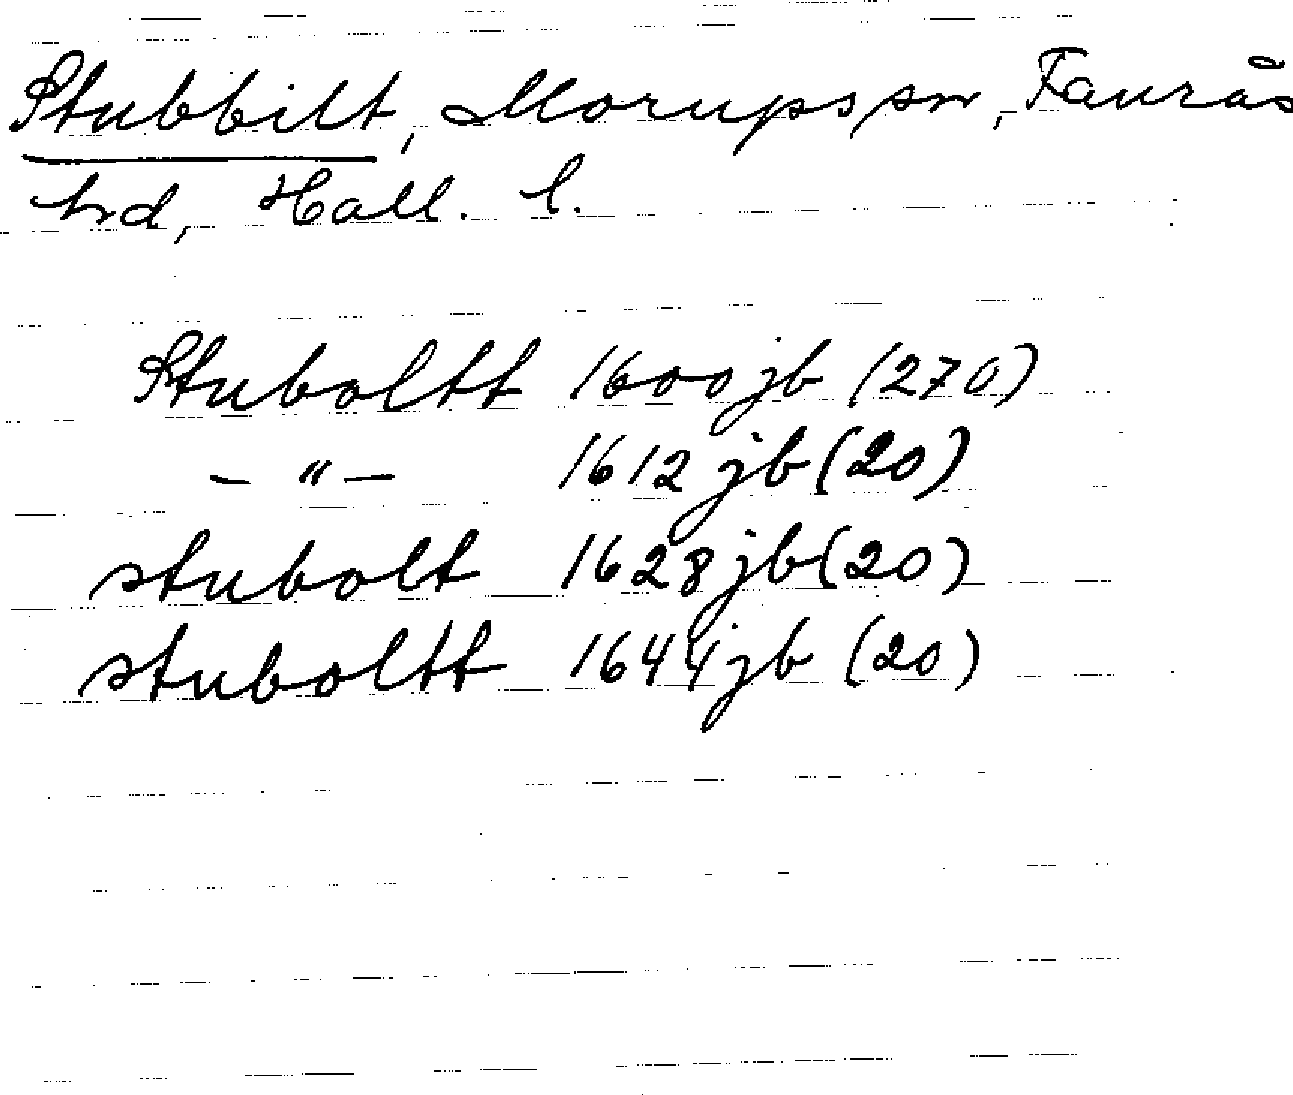 Stubbilt, Morups sn, Faurås
hrd, Hall. l.
Stuboltt 1600 jb (270)
- " - 1612 jb (20)
stubolt 1628 jb (20)
stuboltt 1644 jb (20)